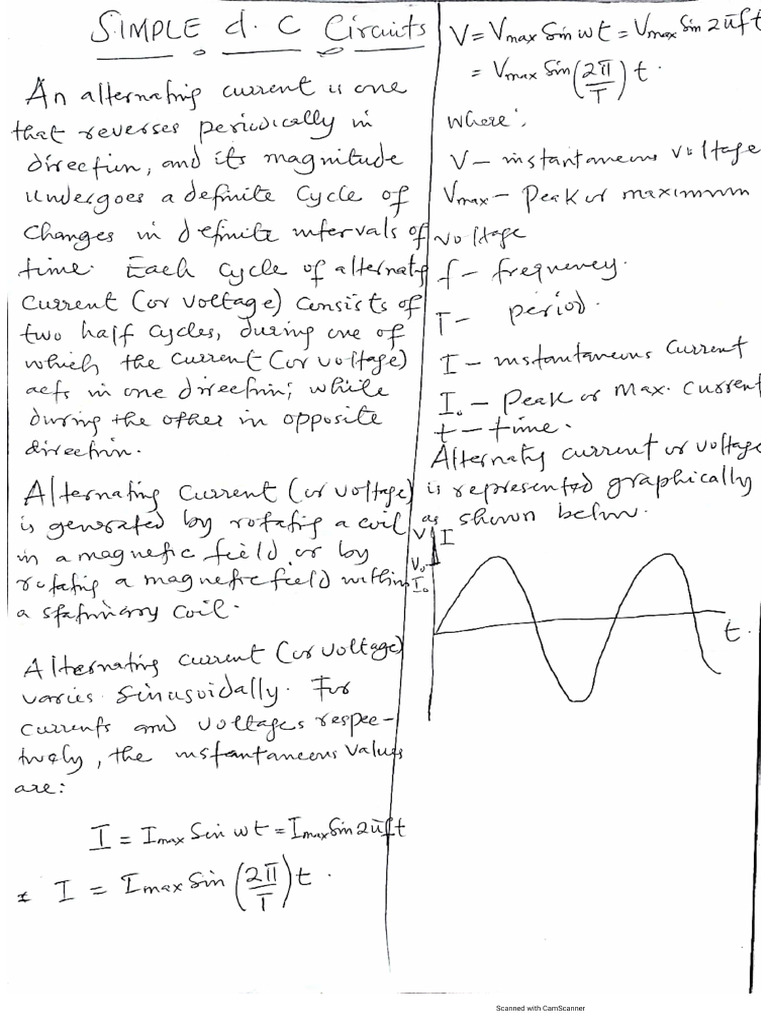 SIMPLE d. C Circuits
An alternating current is one
that reverses periodically in
direction, and its magnitude
undergoes a definite cycle of
changes in definite intervals of
time. Each cycle of alternatg
current (or voltage) consists of
two half cycles, during one of
which the current (or voltage)
acts in one direction; while
during the other in opposite
direction.
Alternating current (or voltage)
is generated by rotatig a coil
in a magnetic field or by
rotatig a magnetic field within
a stationary coil.
Alternating current (or voltage)
varies sinusoidally. For
currents and voltages respec-
tively, the instantaneous values
are:
I = Imax Sin wt = Imax Sin 2πft
I = Imax Sin (2π/T) t.
V = Vmax Sin wt = Vmax Sin 2πft
= Vmax Sin (2π/T) t.
where:
V – instantaneous voltage
Vmax – Peak or maximum
voltage
f – frequency.
T – period.
I – instantaneous current
I₀ – Peak or Max. current
t – time.
Alternatg current or voltage
is represented graphically
as shown below.
V I
V₀
I₀
t.
Scanned with CamScanner